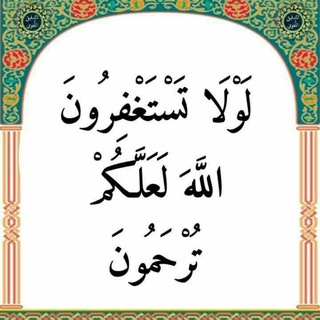 لَوْلَا تَسْتَغْفِرُونَ
اللَّهَ لَعَلَّكُمْ
تُرْحَمُونَ